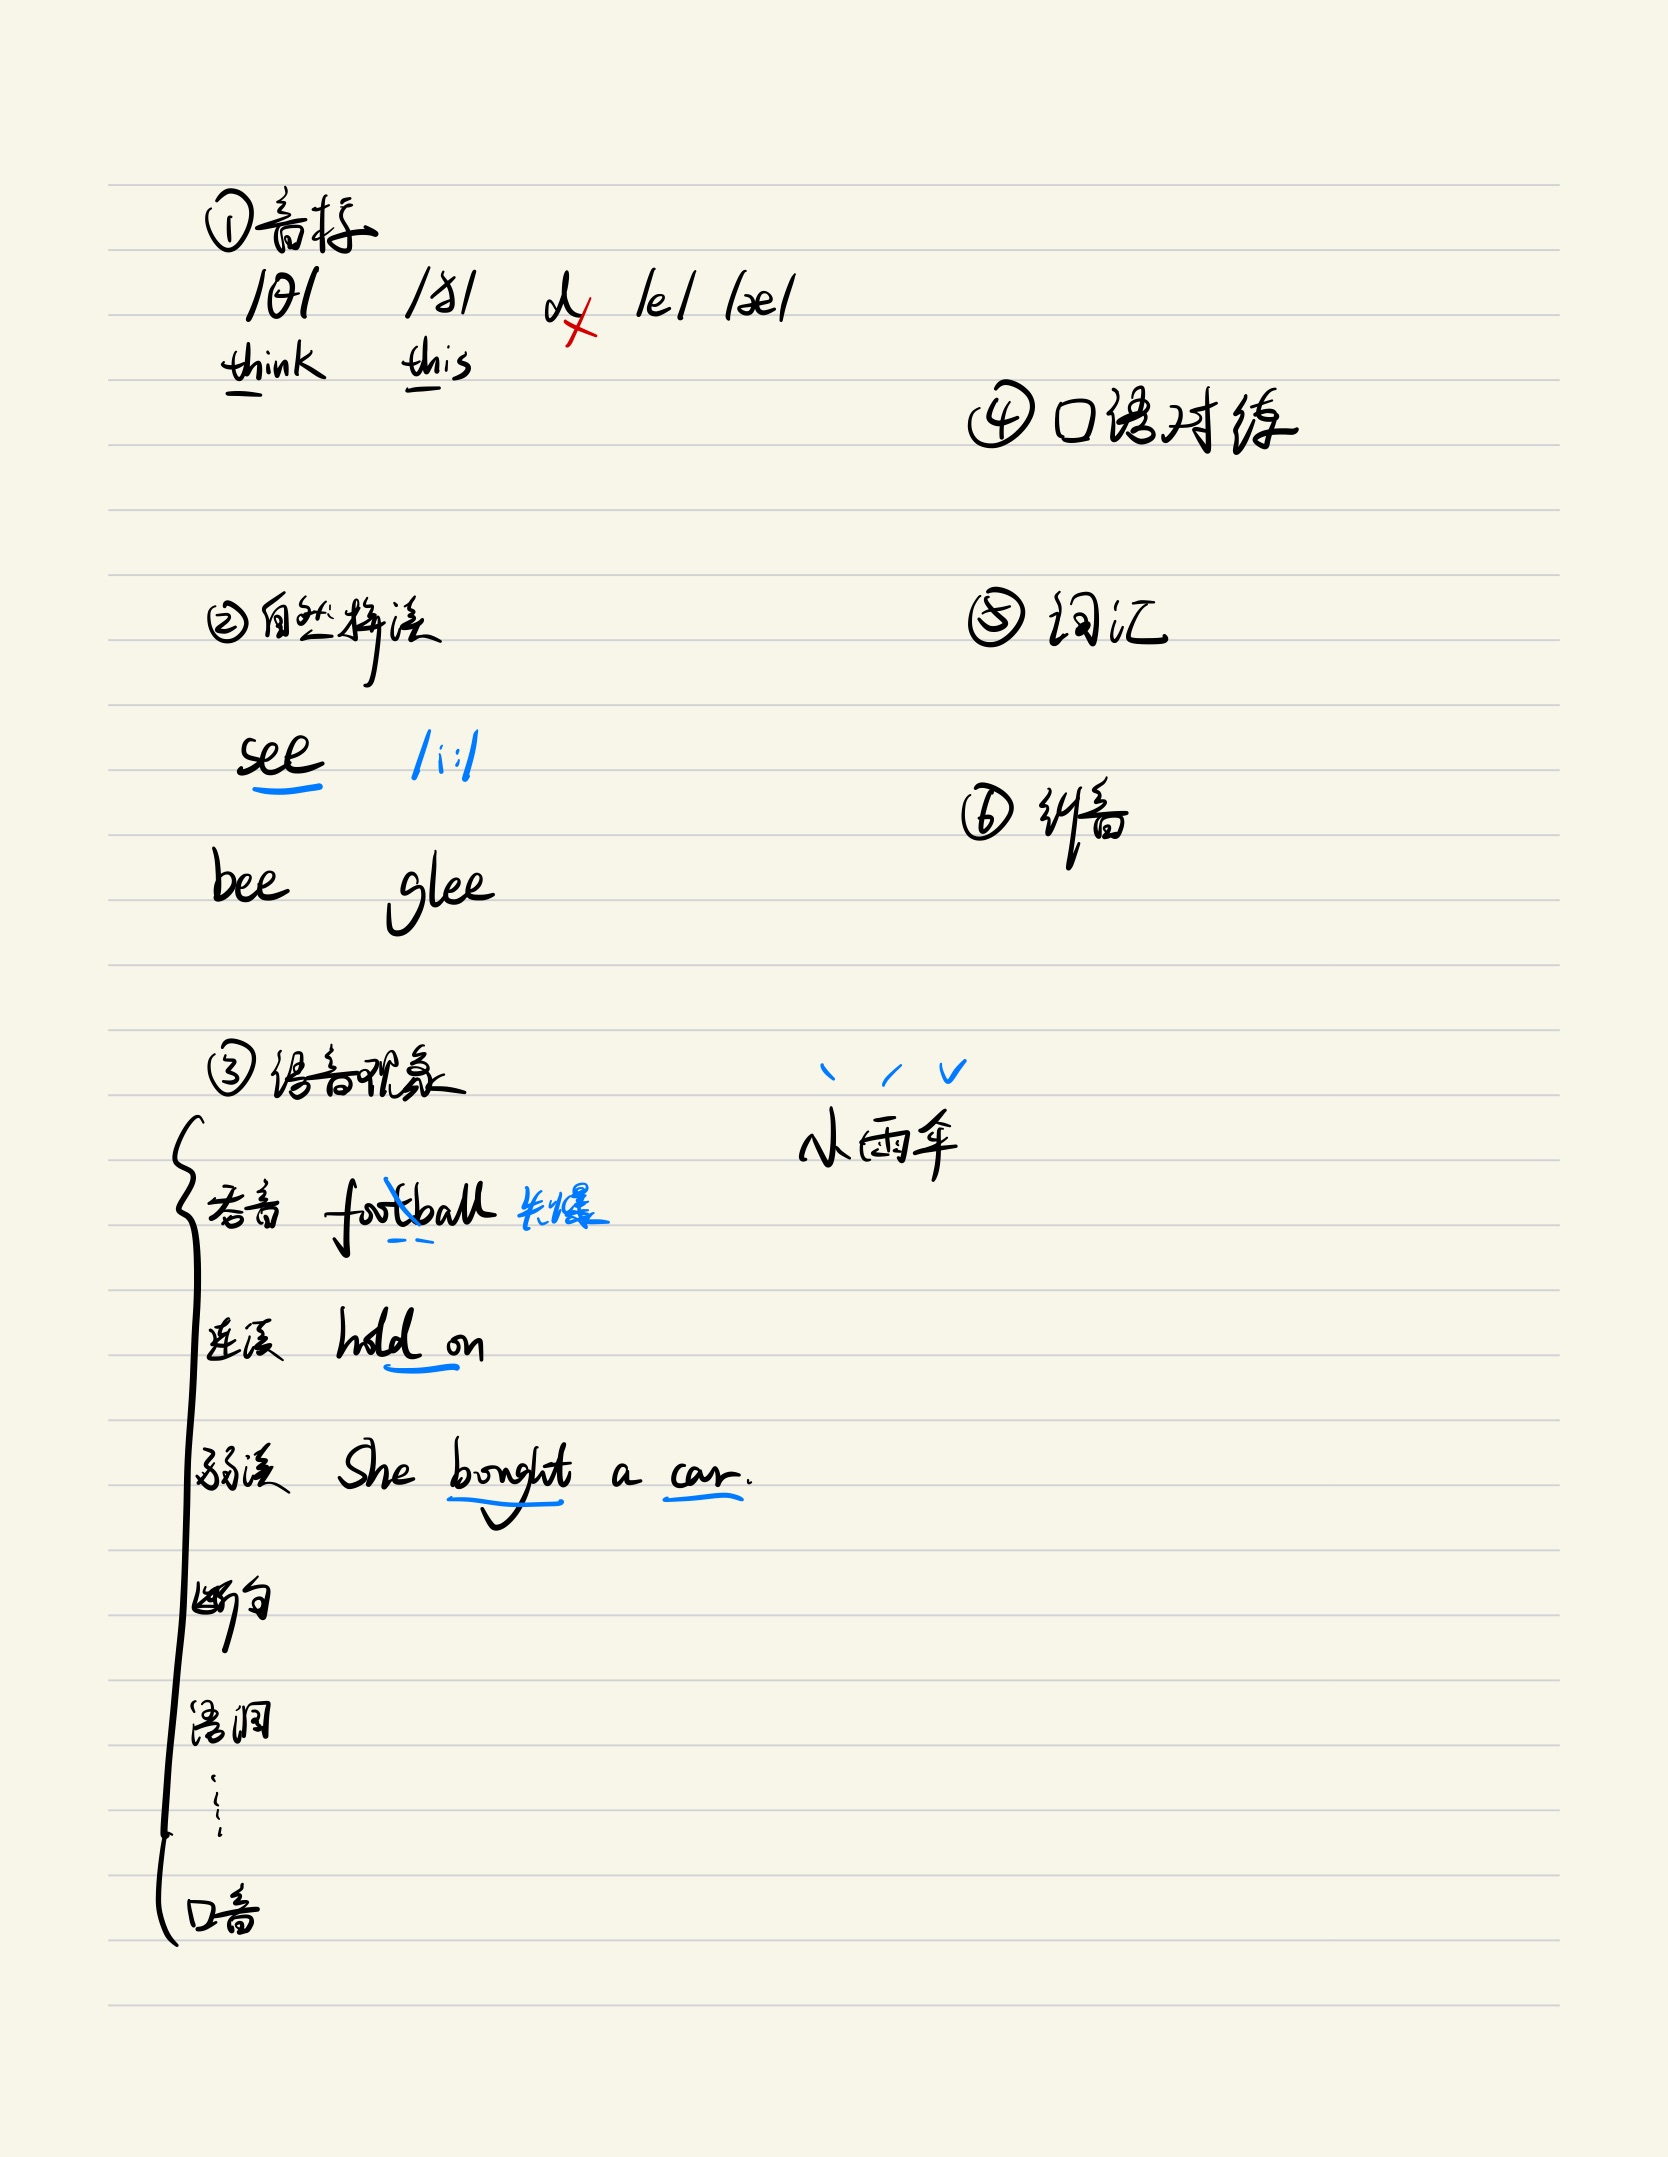 ①音标
/θ/ /ð/ d /e/ /æ/
think this
②自然拼读
see /i:/
bee glee
③语音现象
吞音 football 失爆
连读 hold on
弱读 She bought a car.
断句
语调
口音
小雨伞
④口语对练
⑤词汇
⑥纠音